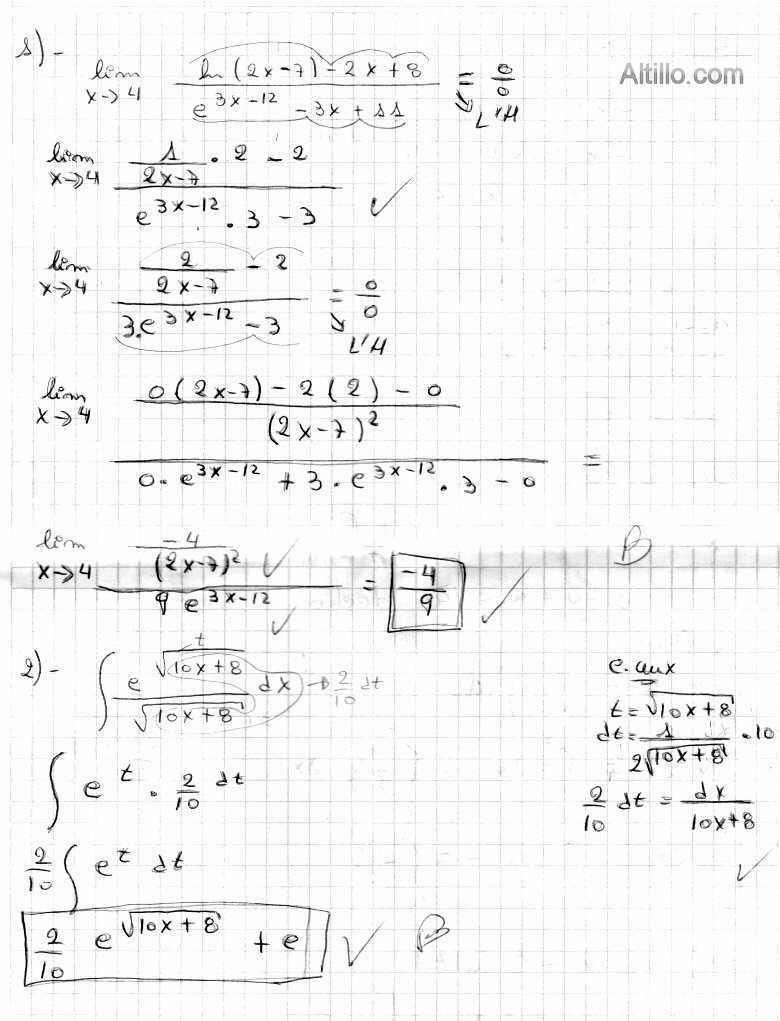 1)- lim x→4 (ln (2x-7) - 2x + 8) / (e^(3x-12) - 3x + 11) = 0/0 L'H
Altillo.com
lim x→4 (1/(2x-7) · 2 - 2) / (e^(3x-12) · 3 - 3) ✓
lim x→4 (2/(2x-7) - 2) / (3.e^(3x-12) - 3) = 0/0 L'H
lim x→4 ((0(2x-7) - 2(2) - 0) / (2x-7)^2) / (0·e^(3x-12) + 3·e^(3x-12)·3 - 0) =
lim x→4 (-4/(2x-7)^2 ✓) / (9 e^(3x-12) ✓) = -4/9 ✓ B
2)- ∫ e^√(10x+8) / √(10x+8) dx → 2/10 dt
t
∫ e^t · 2/10 dt
2/10 ∫ e^t dt
2/10 e^√(10x+8) + e ✓ B
c. aux
t = √(10x+8)
dt = 1/(2√(10x+8)) · 10
2/10 dt = dx/(10x+8)
✓